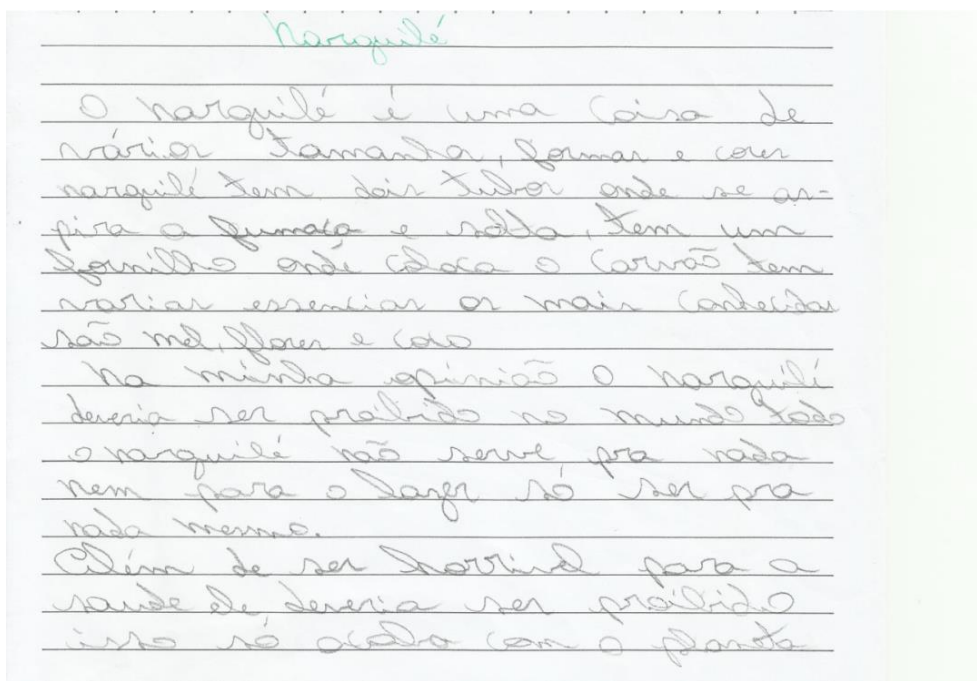 Narguilé
O narguilé é uma coisa de
vários tamanhos, formas e cores
narguilé tem dois tubos onde se as-
pira a fumaça e solta, tem um
fornilho onde coloca o carvão tem
varias essencias os mais conhecidas
são mel, flores e coco
Na minha opinião o narguilé
deveria ser proibido no mundo todo
o narguilé não serve pra nada
nem para o lazer só ser pra
nada mesmo.
Além de ser horrivel para a
saude ele deveria ser proibido
isso só acaba com o planeta